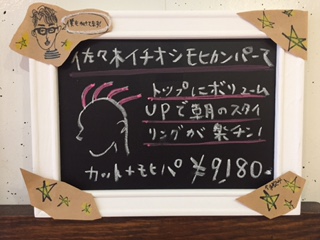 佐々木イチオシモヒカンパーマ
トップにボリューム
UPで朝のスタイ
リングが楽チン!
カット+モヒパ ¥9,180-